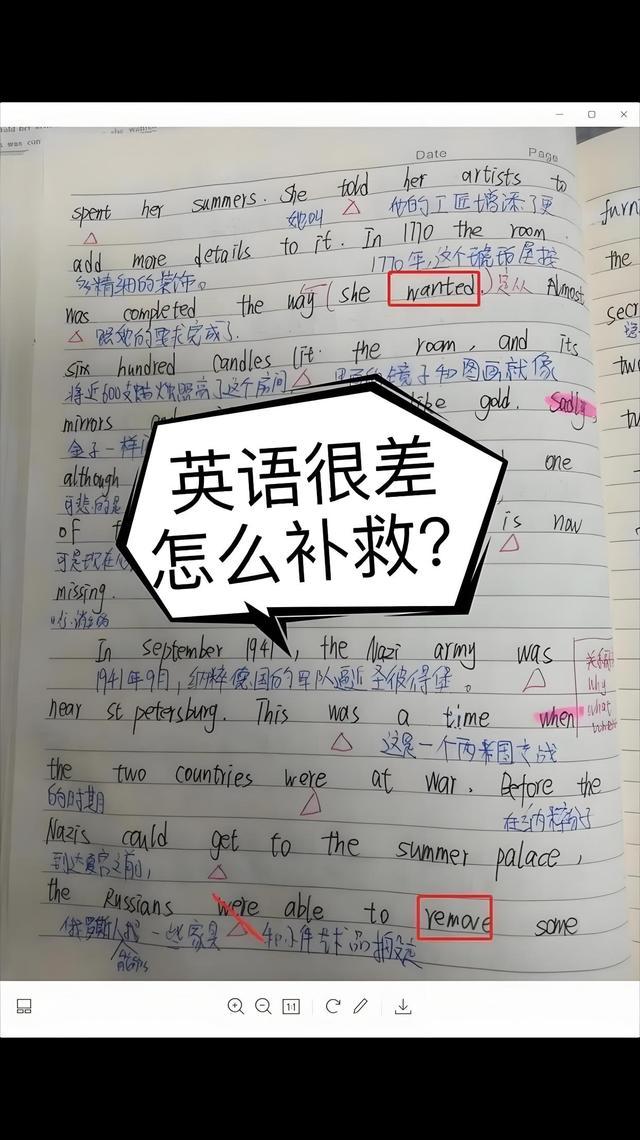 Date Page
spent her summers. She told her artists to
她叫 他的工匠增添了更
add more details to it. In 1770 the room
多精细的装饰。 1770年,这个琥珀屋按
was completed the way (she wanted.) 定从 Almost
照她的要求完成了.
six hundred candles lit the room, and its
将近600支蜡烛照亮了这个房间, 镜子和图画就像
mirrors like gold. Sadly,
金子一样
although one
可悲的是
of is now
可是现在
missing.
In September 1941, the Nazi army was
1941年9月,纳粹德国的军队逼近圣彼得堡。
near st petersburg. This was a time when
why
what
这是一个两国交战
the two countries were at war. Before the
的时期 在纳粹分子
Nazis could get to the summer palace,
到达夏宫之前,
the Russians were able to remove some
俄罗斯人 一些家具 和小件艺术品
furni
the
secre
tw
the
英语很差
怎么补救?
1:1